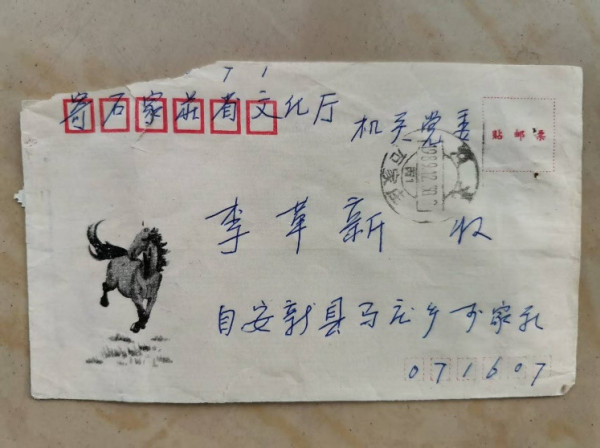 7 1
寄石家庄省文化厅
机关党委
贴邮票
石家庄
李革新 收
自安新县马庄乡
071607